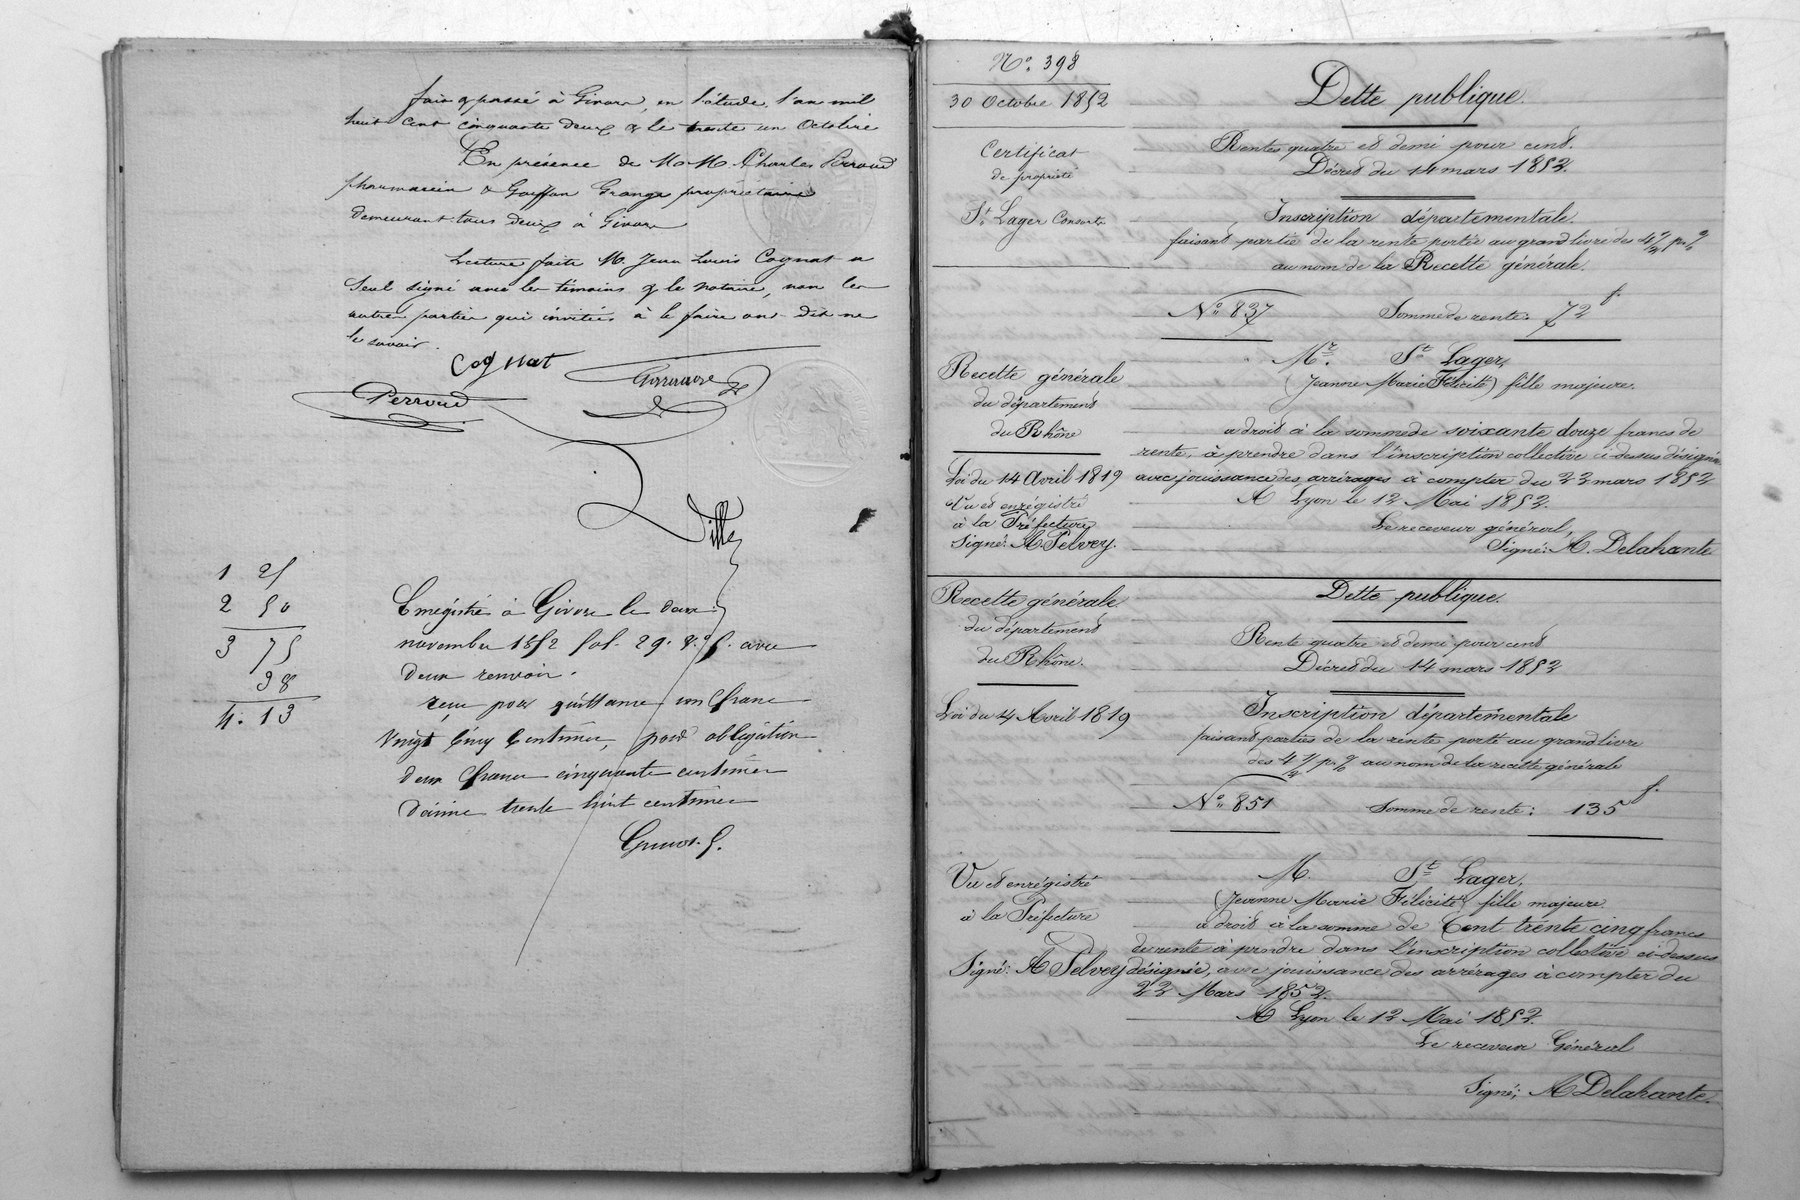 fait & passé à Givors, en l'étude, l'an mil
huit cent cinquante deux & le trente un Octobre
En présence de MM. Charles Perroud
pharmacien & Goiffon Grange propriétaire
demeurant tous deux à Givors
Lecture faite M. Jean Louis Cognat a
seul signé avec les témoins & le notaire, non les
autres parties qui invitées à le faire ont dit ne
le savoir.
Cognat
Perroud
Ville
1 25
2 50
3 75
38
4. 13
Enregistré à Givors le deux
novembre 1852 fol. 29. avec
deux renvois.
reçu pour quittance un franc
vingt cinq centimes, pour obligation
deux francs cinquante centimes
décime trente huit centimes
N° 398
30 Octobre 1852
Certificat
de propriété
St Lager Consorts
Dette publique.
Rentes quatre et demi pour cent.
Décret du 14 mars 1852.
Inscription départementale.
faisant partie de la rente portée au grand livre des 4 1/2 p. %
au nom de la Recette générale.
N° 837 Somme de rente: 72 f.
Recette générale
du département
du Rhône
Loi du 14 Avril 1819
Vu et enregistré
à la Préfecture
Signé: A Pelvey.
Mr. St Lager,
(Jeanne Marie Félicité) fille majeure.
a droit à la somme de soixante douze francs de
rente, à prendre dans l'inscription collective ci-dessus désignée
avec jouissance des arrérages à compter du 22 mars 1852
A Lyon le 12 Mai 1852.
Le receveur général,
Signé: A. Delahante
Recette générale
du département
du Rhône.
Loi du 14 Avril 1819
Dette publique.
Rente quatre et demi pour cent
Décret du 14 mars 1852
Inscription départementale
faisant parties de la rente porté au grand livre
des 4 1/2 p. % au nom de la recette générale
N° 851 Somme de rente: 135 f.
Vu et enregistré
à la Préfecture
Signé: A Pelvey
M. St Lager,
(Jeanne Marie Félicité) fille majeure
a droit à la somme de Cent trente cinq francs
de rente à prendre dans l'inscription collective ci-dessus
désignée, avec jouissance des arrérages à compter du
22 Mars 1852.
A Lyon le 12 Mai 1852.
Le receveur Général
Signé; A Delahante.